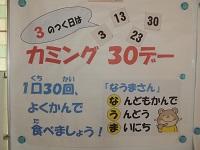 3のつく日は
3 13 30
カミング 30デー
1口30回、
よくかんで
食べましょう!
「なうまさん」
なんどもかんで
うんどう
まいにち
くち かい
た